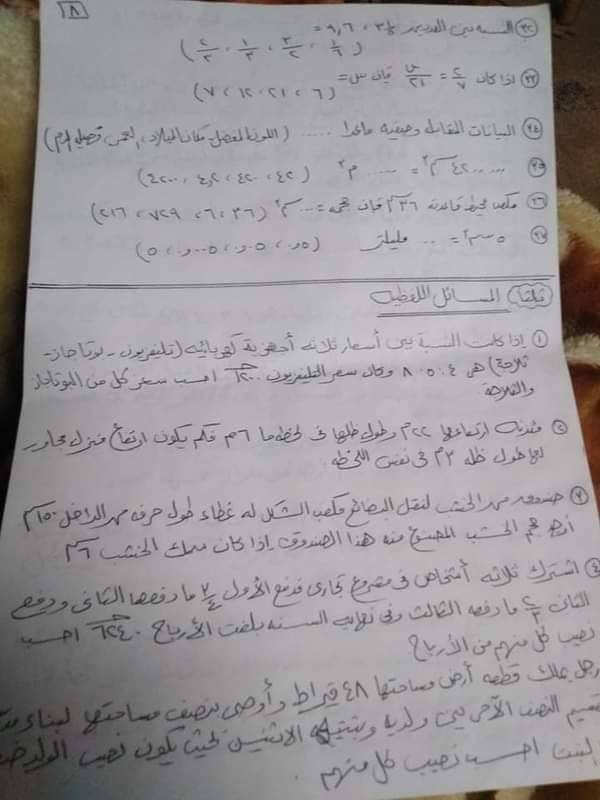 ٨
(٢٢) النسبة بين العددين ٣/٥ ، ٩,٦ =
( ١/٦ ، ٣/٢ ، ١/٣ ، ٢/٣ )
(٢٣) اذا كان ٢/٧ = س/٢١ فإن س =
( ٦ ، ٢١ ، ١٢ ، ٧ )
(٢٤) البيانات المقابلة وصفية ماعدا ..... (اللون المفضل، مكان الميلاد، العمر، فصيلة الدم)
(٢٥) ٤٢٠٠ سم٢ = ...... م٢ (٤٢ ، ٤٢٠ ، ٤,٢ ، ٤٢٠٠)
(٢٦) مكعب محيط قاعدته ٣٦ سم فإن حجمه = ... سم٣ (٣٦ ، ٦ ، ٧٢٩ ، ٢١٦)
(٢٧) ٥ سم٣ = .. ملليلتر
ثالثا المسائل اللفظية
(١) إذا كانت النسبة بين أسعار ثلاثة أجهزة كهربائية (تليفزيون - بوتاجاز -
ثلاجة) هى ٤ : ٥ : ٨ وكان سعر التليفزيون ١٢٠٠ احسب سعر كل من البوتاجاز
والثلاجة
(٢) مئذنة ارتفاعها ٢٢ م وطول ظلها فى لحظة ما ٦ م فكم يكون ارتفاع منزل مجاور
لها طول ظله ٣ م فى نفس اللحظة
(٣) صندوق من الخشب لنقل البضائع مكعب الشكل له غطاء طول حرفه من الداخل ١٥٠ سم
أوجد حجم الخشب المصنوع منه هذا الصندوق إذا كان سمك الخشب ٦ سم
(٤) اشترك ثلاثة أشخاص فى مشروع تجارى فدفع الأول ٧/٤ ما دفعه الثانى ودفع
الثانى ٢/٣ ما دفعه الثالث وفى نهاية السنه بلغت الأرباح ٦٢٤٠ احسب
نصيب كل منهم من الأرباح
رجل يملك قطعه أرض مساحتها ٤٨ قيراط وأوصى بنصف مساحتها لبناء
تقسيم النصف الآخر بين ولديه وبنتيه الاثنين بحيث يكون نصيب الولد
البنت احسب نصيب كل منهم .